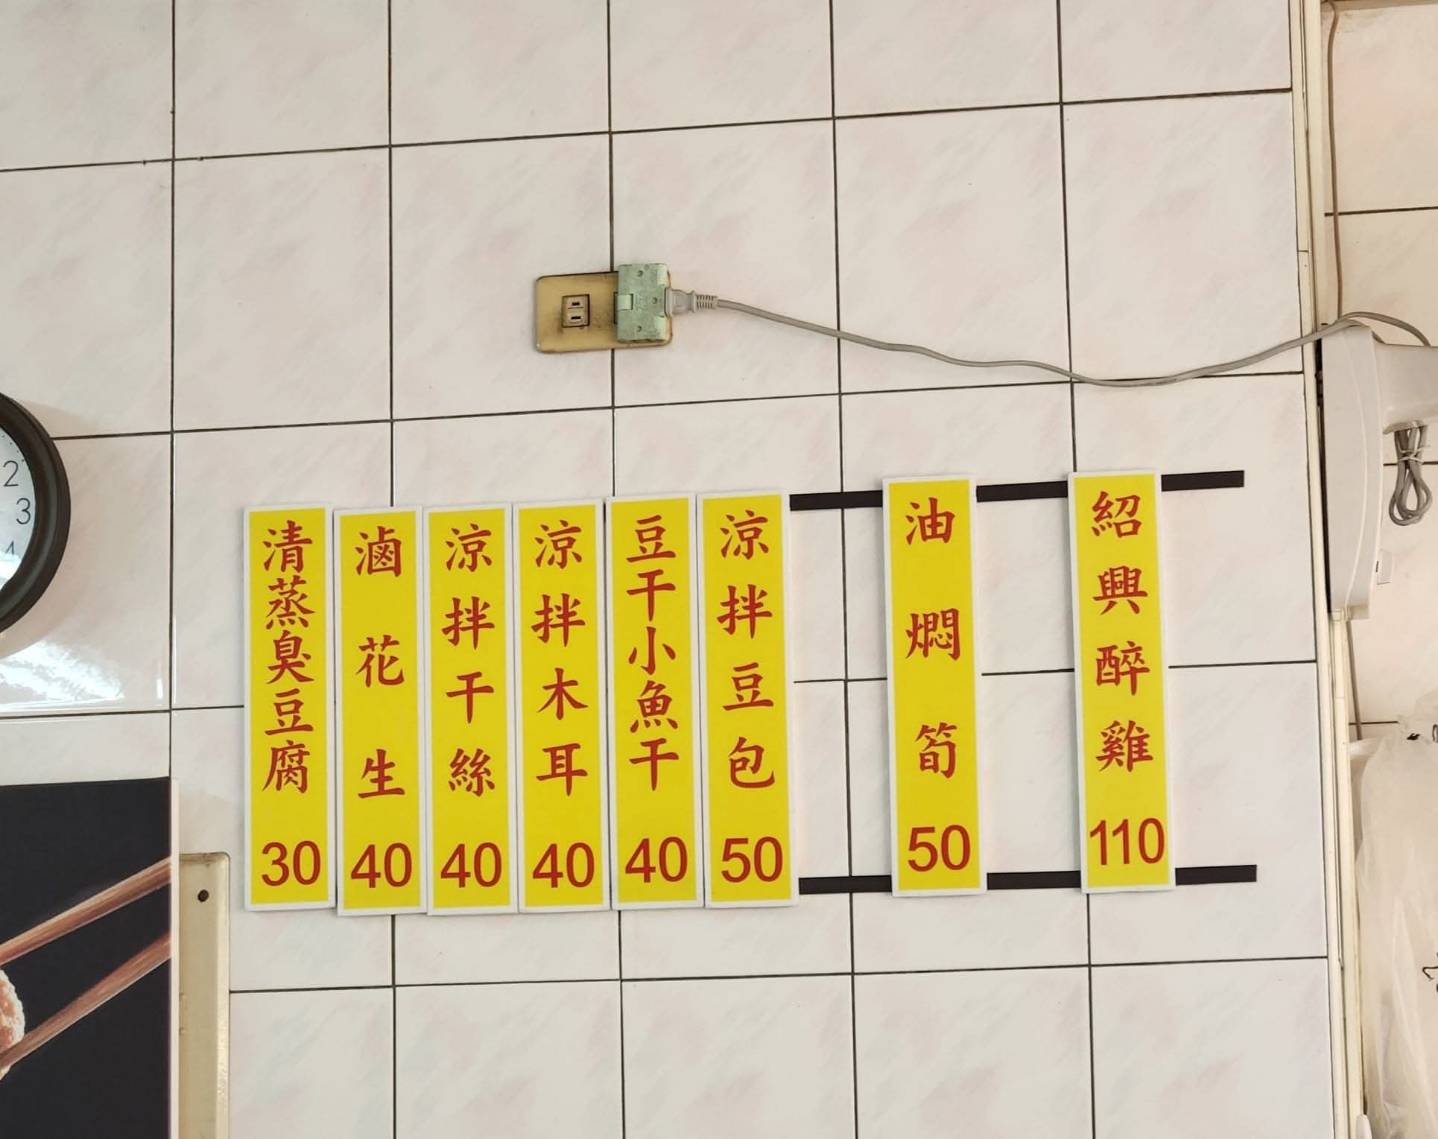 清蒸臭豆腐 30
滷花生 40
涼拌干絲 40
涼拌木耳 40
豆干小魚干 40
涼拌豆包 50
油燜筍 50
紹興醉雞 110
2
3
4